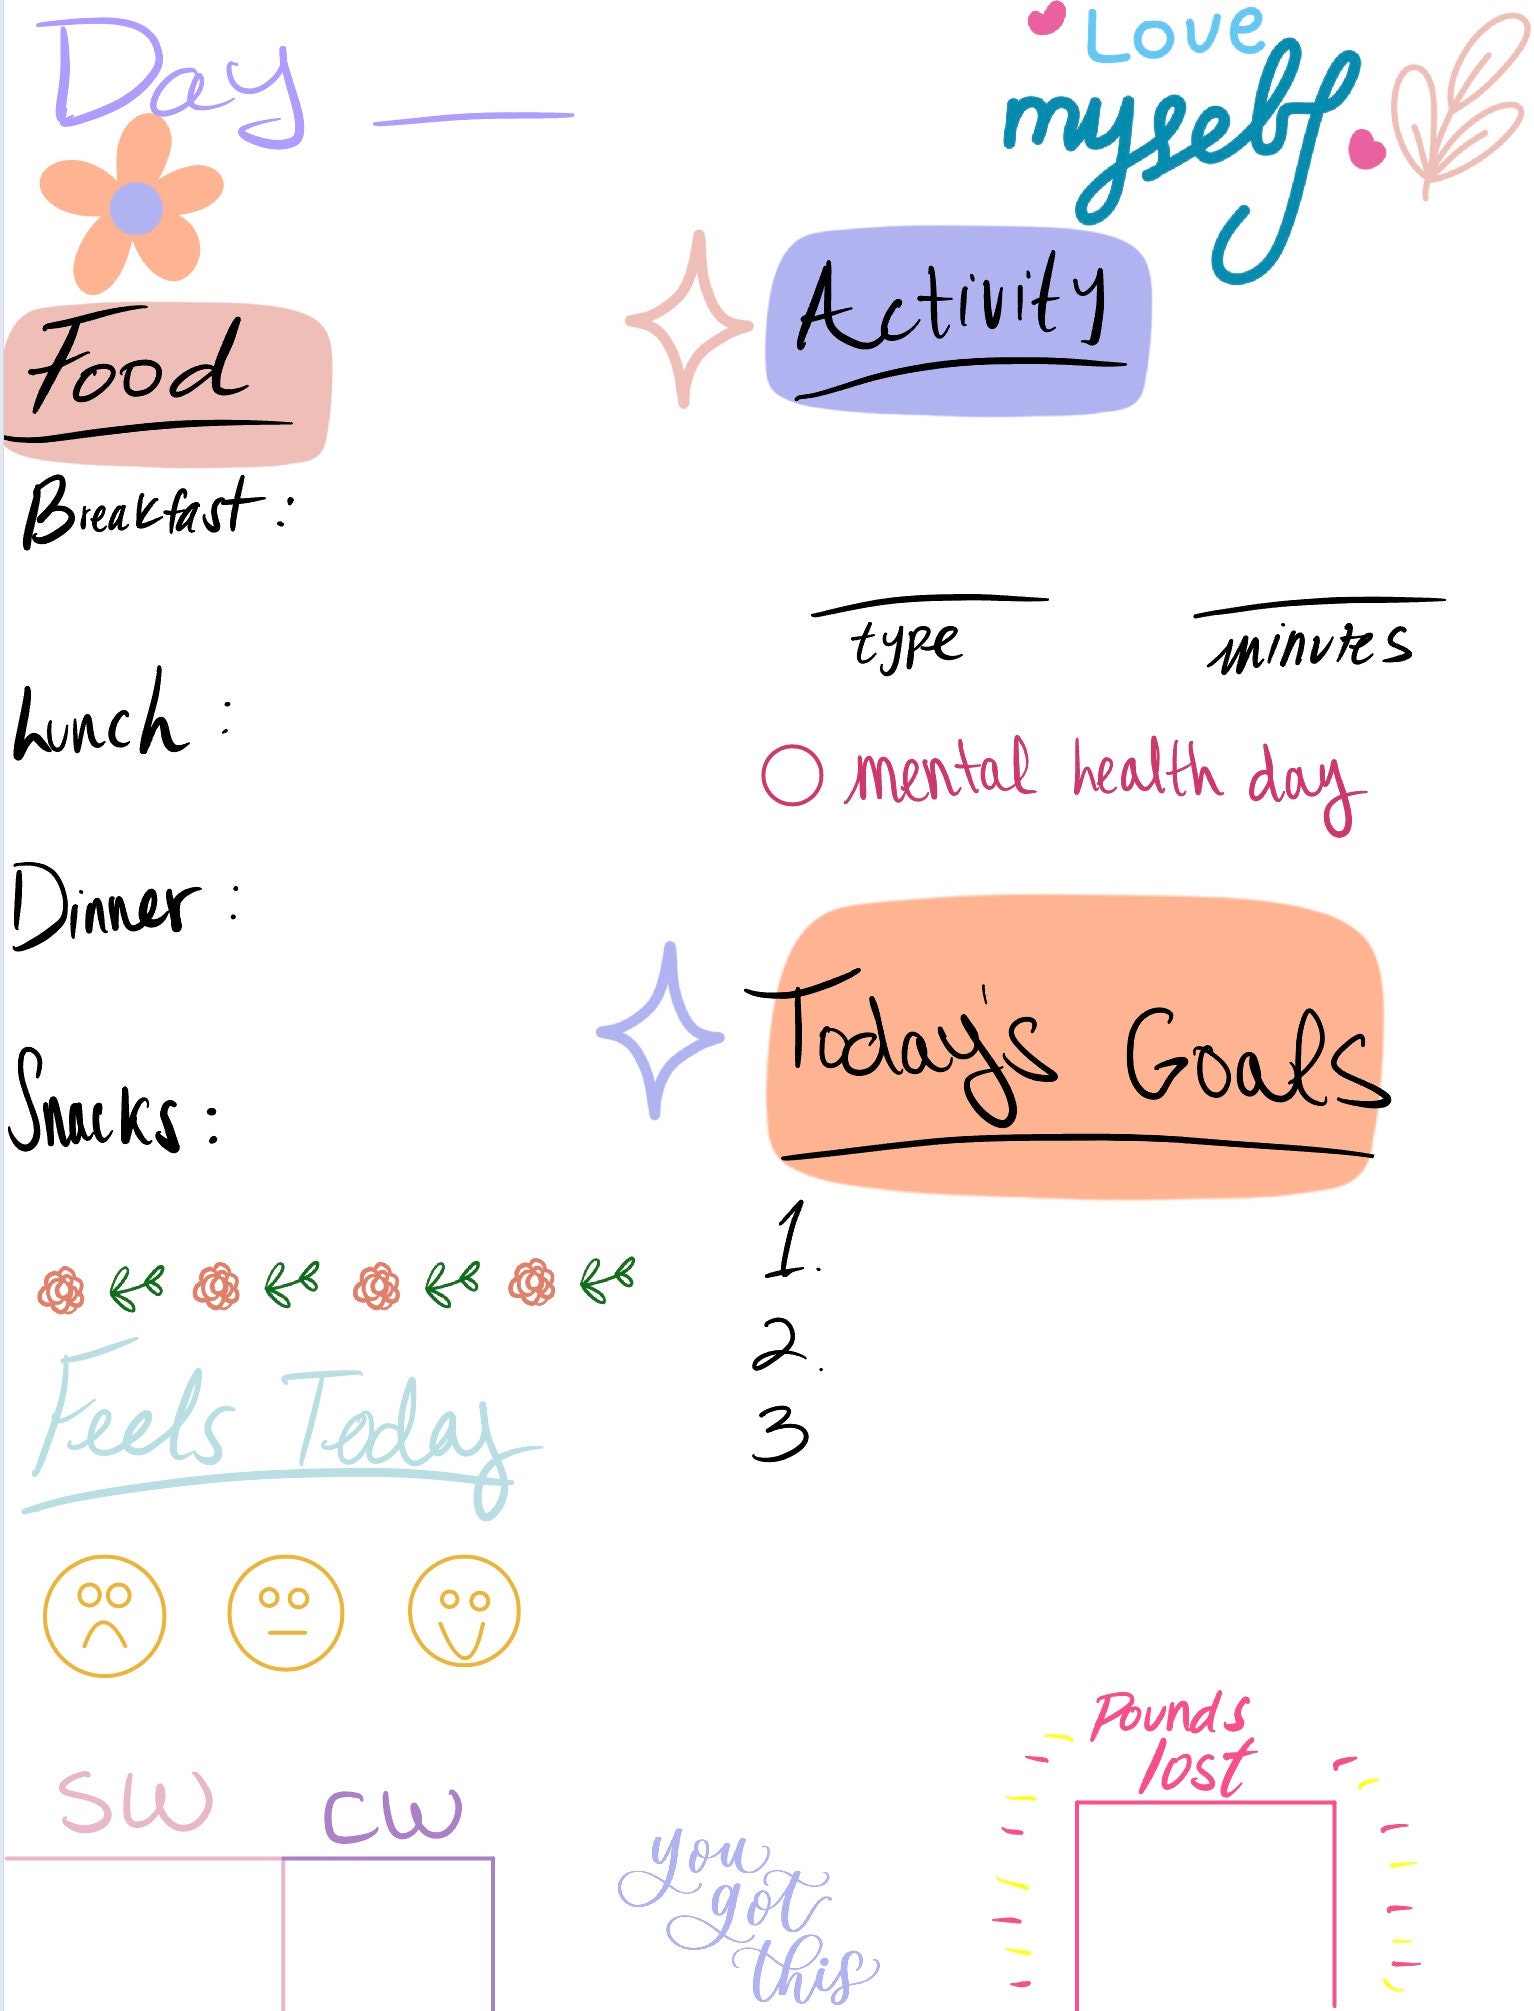 Day
Love
myself
Food
Breakfast:
Lunch:
Dinner:
Snacks:
Activity
type minutes
mental health day
Today's Goals
1.
2.
3
Feels Today
SW CW
you
got
this
Pounds
lost